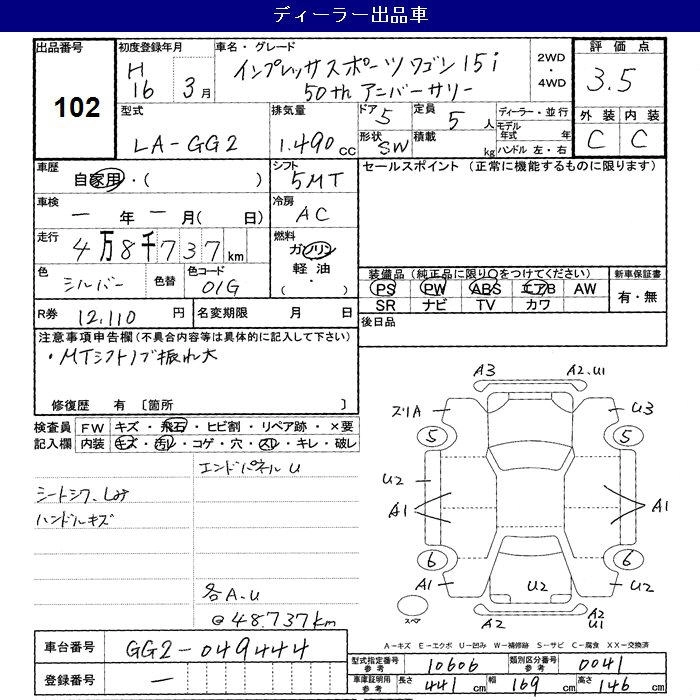 ディーラー出品車
出品番号
102
初度登録年月
H16 3月
車名・グレード
インプレッサスポーツワゴン 15i
50th アニバーサリー
2WD・4WD
評価点
3.5
外装 内装
C C
型式
LA-GG2
排気量
1.490cc
ドア 5
形状 SW
定員 5人
積載 kg
ディーラー・並行
モデル年式 年
ハンドル 左・右
車歴
自家用・( )
シフト
5MT
セールスポイント (正常に機能するものに限ります)
車検
一年一月( 日)
冷房
AC
走行
4万8千737km
燃料
ガソリン
軽油
( ・ )
色
シルバー
色替
色コード
01G
装備品(純正品に限り○をつけてください)
PS PW ABS エアB AW
SR ナビ TV カワ
新車保証書
有・無
R券 12.110円
名変期限 月 日
後日品
注意事項申告欄(不具合内容等は具体的に記入して下さい)
・MTシフトノブ振れ大
修復歴 有 〔箇所 〕
検査員記入欄
FW キズ・飛石・ヒビ割・リペア跡・×要
内装 キズ・汚れ・コゲ・穴・スレ・キレ・破レ
エンドパネルU
シートシワ、しみ
ハンドルキズ
各A.U
@48.737km
A3 A2.U1
ズリA U3
5 5
U2
A1 A1
6 6
A1 U2 U2
スペア A2 A2 U1
A-キズ E-エクボ U-凹み W-補修跡 S-サビ C-腐食 XX-交換済
車台番号
GG2-049444
登録番号
一
型式指定番号参考 10606
類別区分番号参考 0041
車庫証明用参考 長さ 441cm 幅 169cm 高さ 146cm